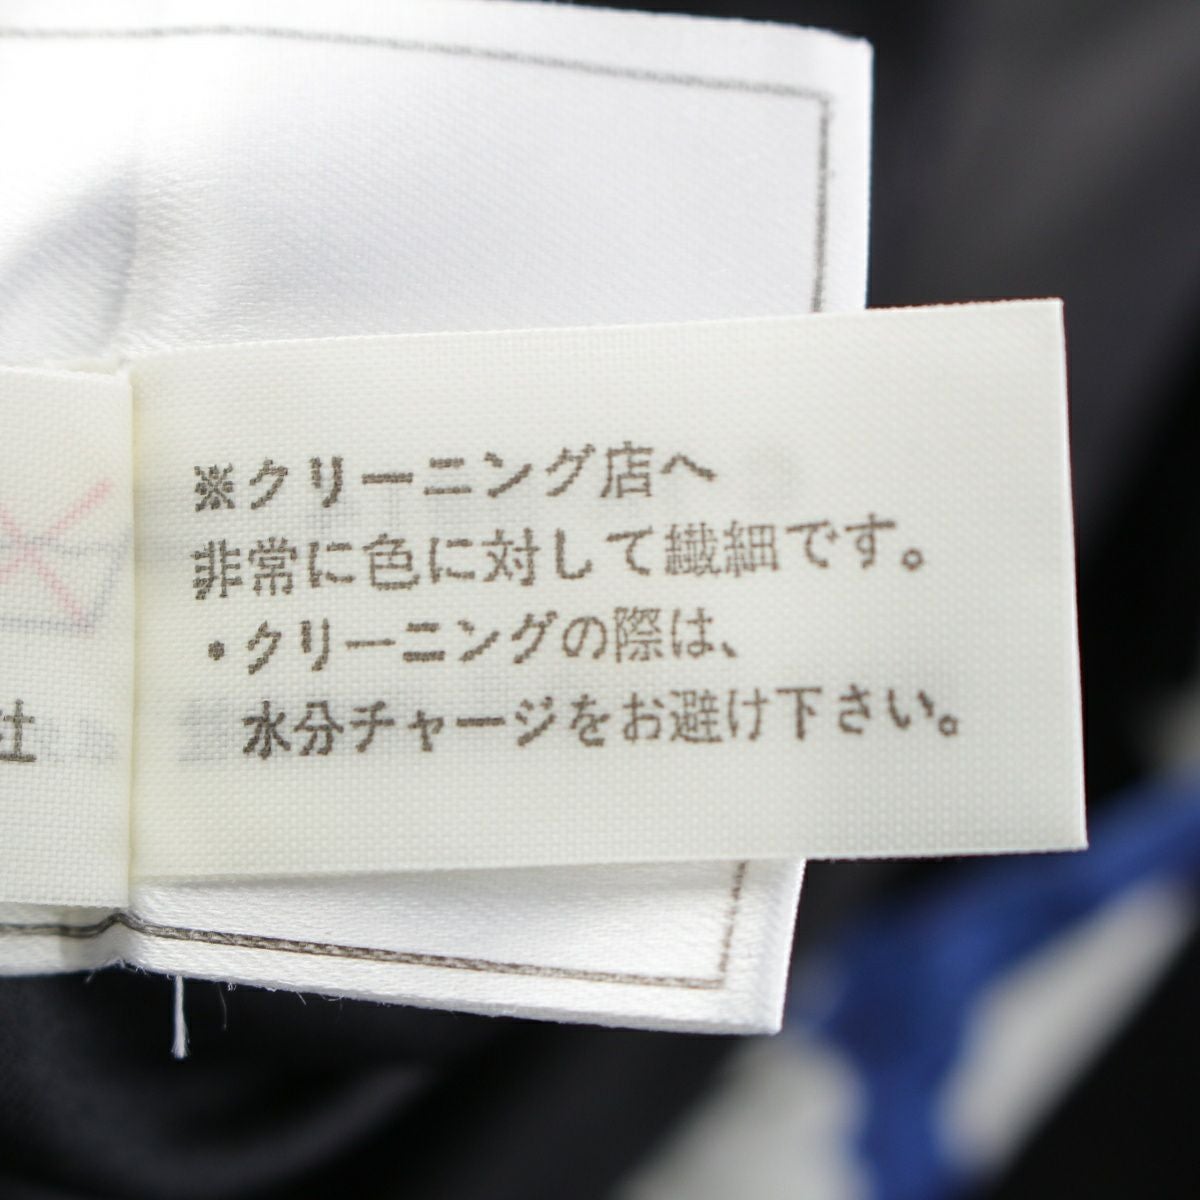 ※クリーニング店へ
非常に色に対して繊細です。
・クリーニングの際は、
水分チャージをお避け下さい。
社